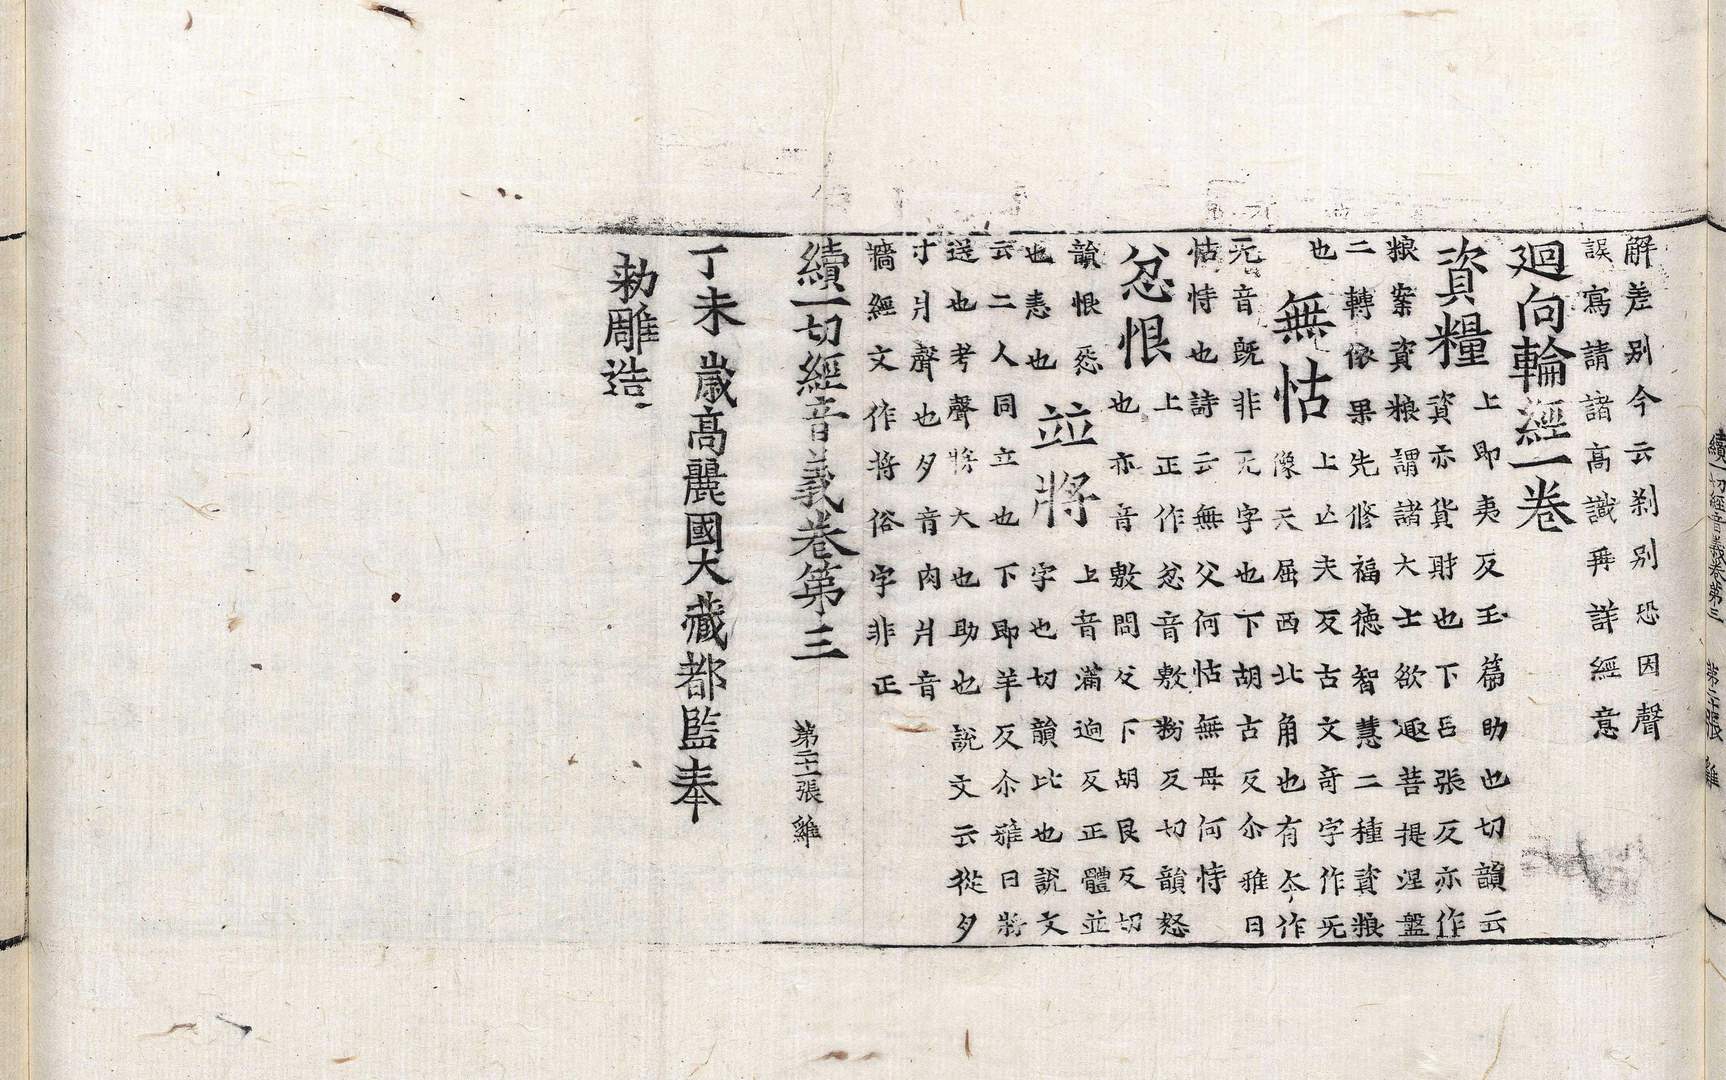 解差別今云刹別恐因聲
誤寫請諸高識再詳經意
廻向輪經一卷
資糧
上即夷反玉篇助也切韻云
資亦貨財也下吕張反亦作
粮案資粮謂諸大士欲趣菩提涅盤
二轉依果先修福德智慧二種資粮
也
無怙
上亾夫反古文奇字作无
像天屈西北角也有本作
无音既非无字也下胡古反尒雅曰
怙恃也詩云無父何怙無母何恃
忿恨
上正作忿音敷粉反切韻怒
也亦音敷問反下胡艮反切
韻恨怨
也恚也
並將
上音蒲迥反正體並
字也切韻比也說文
云二人同立也下即羊反尒雅曰將
送也考聲將大也助也說文云從夕
寸爿聲也夕音肉爿音
牆經文作将俗字非正
續一切經音義卷第三
第二十一張 雞
丁未歲高麗國大藏都監奉
勑雕造